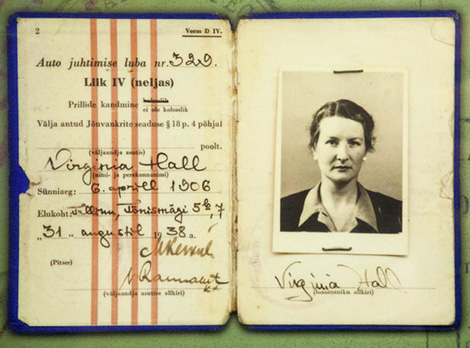 2
Vorm D IV.
Auto juhtimise luba nr. 329.
Liik IV (neljas)
Prillide kandmine kohuslik
ei ole kohuslik
Välja antud Jõuvankrite seaduse § 18 p. 4 põhjal
poolt.
(väljaandja asutis)
Virginia Hall
(nimi- ja perekonnanimi)
Sünniaeg: 6. aprill 1906
Elukoht: Tallinn, Tõnismägi 5
"31" augustil 1938 a.
(Pitser)
(väljaandja asutise allkiri)
Virginia Hall
(kasutaniku allkiri)